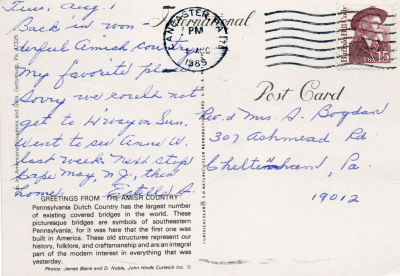 Tues, Aug. 1
Back in won-
derful Amish country
My favorite place
Sorry we could not
get to H'way on Sun.
Went to see Anne W.
last week. Next stop
Cape May, N.J., then
home. Estelle S.
GREETINGS FROM "THE AMISH COUNTRY"
Pennsylvania Dutch Country has the largest number
of existing covered bridges in the world. These
picturesque bridges are symbols of southeastern
Pennsylvania, for it was here that the first one was
built in America. These old structures represent our
history, folklore, and craftsmanship and are an integral
part of the modern interest in everything that was
yesterday.
Photos: James Blank and D. Noble, John Hinde Curteich Inc. ©
International
Post Card
LANCASTER PA
PM
AUG
1989
Buffalo Bill Cody
USA 15
Rev. & Mrs. A. Bogdan
307 Ashmead Rd
Cheltenham, Pa
19012